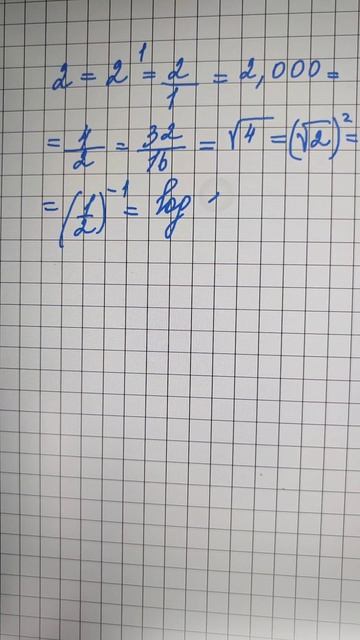 2 = 2¹ = 2/1 = 2,000 =
= 4/2 = 32/16 = √4 = (√2)² =
= (1/2)⁻¹ = log